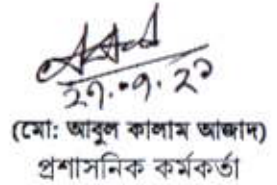 ২৭.০৭.২১
(মো: আবুল কালাম আজাদ)
প্রশাসনিক কর্মকর্তা